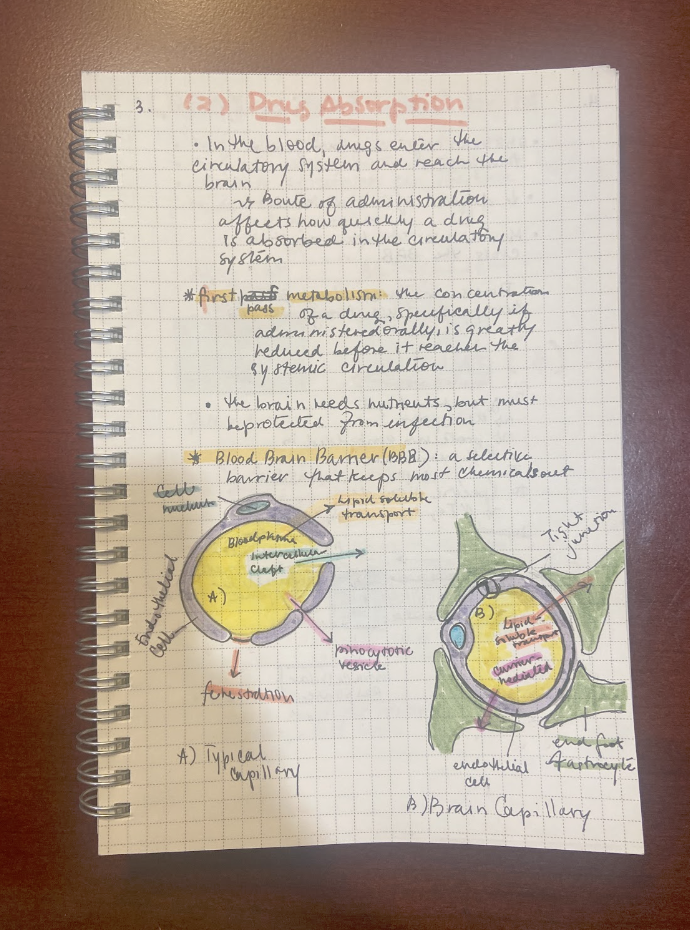 3. (2) Drug Absorption
• In the blood, drugs enter the
circulatory system and reach the
brain
↳ Route of administration
affects how quickly a drug
is absorbed in the circulatory
system
* first pass metabolism: the concentration
of a drug, specifically if
administered orally, is greatly
reduced before it reaches the
systemic circulation
• the brain needs nutrients, but must
be protected from infection
* Blood Brain Barrier (BBB): a selective
barrier that keeps most chemicals out
Cell
nucleus
Lipid soluble
transport
Blood plasma
Intercellular
cleft
A)
Endothelial
Cell
pinocytotic
vesicle
fenestration
A) Typical
capillary
Tight
junction
B)
Lipid-
soluble
transport
carrier-
mediated
endothelial
cell
end foot
of astrocyte
B) Brain Capillary